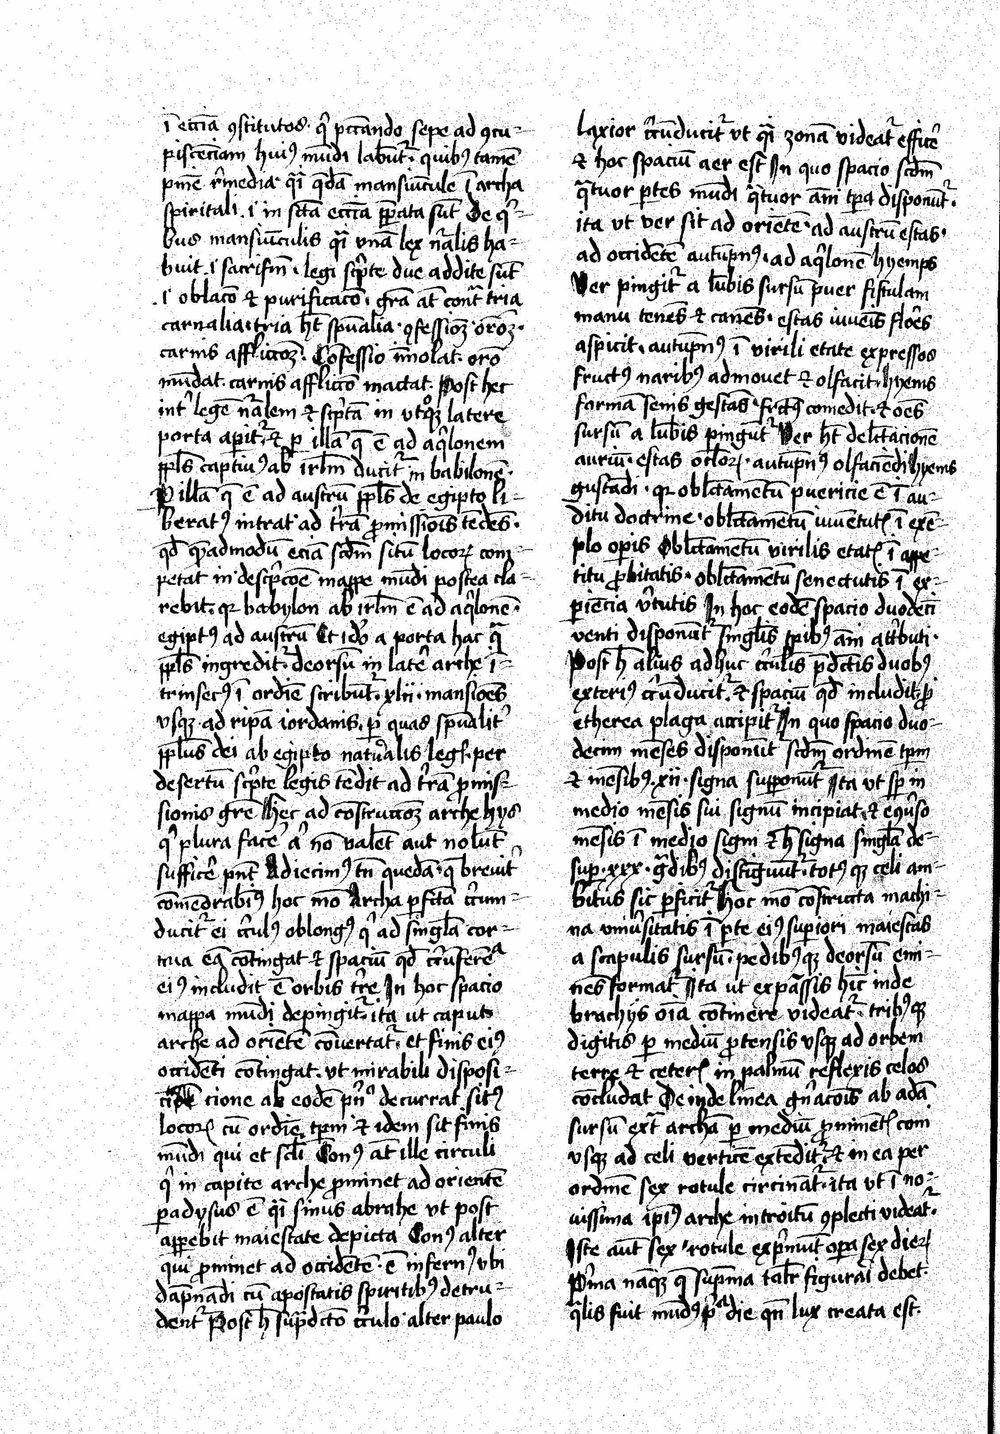 ī ecciā ꝯstitutos · q̄ pccando sepe ad ꝯcu-
piscenciam huiꝰ mūdi labūt᷑ · quibꝰ tamē
pm̄e r̄media q̄i q̄dā mansiūcule ī archa
spiritali · i · in sctā ecciā ꝑp̄ata sūt De q̄-
bus mansiūculis q̄i vnā lex nr̄alis ha-
buit · i · sacrifm̄ · legi scp̄te due addite sūt
· i · oblacō et purificacō · gr̄a at̄ cont᷑ tria
carnalia · tria h̄t spūalia · ꝯfessioꝫ · oroꝫ ·
carnis afflictioꝫ · Confessio īmolat · oro
mūdat · carnis afflictō mactat · Post hec
int᷑ legē nr̄alem et scp̄tā in vtᵒqꝫ latere
porta apit᷑ · et ꝑ illā q̄ ē ad aq̄lonem
pp̄ls captiuꝰ ab irlm̄ ducit᷑ in babilonē ·
P illā q̄ ē ad austrū pp̄ls de egipto li-
beratꝰ intrat ad tr̄ā ꝓmissiois tēdēs ·
qd̄ q̄admodū eciā scdm̄ sitū locoꝝ com-
petat in descp̄coē mappe mūdi postea cla-
rebit · qꝛ babylon ab irlm̄ ē ad aq̄lonē ·
egiptꝰ ad austrū Et idō a porta hac q̄
pp̄ls ingredit᷑ · deorsū in lat̄e arche ī-
trinsecꝰ ī ordīe scribūt᷑ · xlii · mansioēs
vsqꝫ ad ripā iordanis · ꝑ quas spūalit᷑
pp̄lus dei ab egipto natᵘralis legꝭ · per
desertū scp̄te legis tēdit ad tr̄ā ꝓmis-
sionis gr̄e Hec ad constructioꝫ arche hijs
qⁱ plura face᷑ aᵗ nō valēt aut nolūt
suffic̄e pn̄t Adiecimꝰ tn̄ quedā · q̄ breuit᷑
comēdrabimꝰ hoc mō Archa ꝑfctā cr̄cum-
ducit᷑ ei cr̄culꝰ oblongꝰ qⁱ ad singl̄a cor-
nua eā contingat et spaciū qd̄ cr̄ūferēᵃ
eiꝰ includit ē orbis tr̄e In hoc spacio
mappa mūdi depingit᷑ · ita ut caput
arche ad oriētē conuertat᷑ · et finis eiꝰ
occidētē contingat · vt mirabili disposi-
cione ab eodē pn̄ᵒ decurrat sitꝰ
locoꝝ cū ordīe tp̄m et idem sit finis
mūdi qui et scl̄i Conꝰ at̄ ille circuli
qⁱ in capite arche ꝓminet ad orientē
paradysus ē q̄i sinus abrahe vt post
apꝑebit maiestate depicta Conꝰ alter
qui ꝓminet ad occidētē · ē infernꝰ vbi
dāpnādi cū apostatis spiritibꝰ detru-
dent᷑ Post h̄ sup̄dctō cr̄culo alter paulo
laxior cr̄cūducit᷑ vt q̄i zonā videat᷑ effic̄e
et hoc spaciū aer est In quo spacio scdm̄
q̄tuor ptes mūdi q̄tuor āni tp̄a disponūt᷑ ·
ita vt ver sit ad oriētē · ad austrū estas ·
ad occidētē autūpnꝰ · ad aq̄lonē hyemps
Ver pingit᷑ a lūbis sursū puer fistulam
manu tenēs et canēs · estas iuuēis flo͂es
aspicit · autūpnꝰ ī virili etate expressos
fructꝰ naribꝰ admouet et olfacit · Hyems
formā senis gestās · frctꝰ comedit · et oēs
sursū a lūbis pingūt᷑ Ver h̄t delctacionē
auriū · estas ocl̄oꝝ · autūpnꝰ olfaciēdi Hyems
gustādi · qꝛ oblctamētū puericie ē ī au-
ditu doctrine · oblctamētū iuuētutꝭ ī exē-
plo oꝑis Oblctamētū virilis etatꝭ ī appe-
titu ꝓbitatis · oblctamētū senectutis ī ex-
piēcia v̄tutis In hoc eodē spacio duodecī
venti disponūt᷑ singl̄is tp̄ibꝰ āni attributi ·
Post h̄ aliꝰ adhuc cr̄culꝰ p̄dctis duobꝰ
exteriꝰ cr̄cūducit᷑ · et spaciū qd̄ includit · ꝓ
etherea plaga accipit᷑ In quo spacio duo-
decim mēses disponūt᷑ scdm̄ ordinē tp̄m
et mēsibꝰ · xii · signa supponūt᷑ Ita vt sp̄ in
medio mēsis sui signū incipiat · et eqūso
mēsis ī medio signi et h̄ signa singl̄a de-
sup · xxx · gᵃdibꝰ distīguūt᷑ · totꝰ qꝫ celi am-
bitus sic ꝑficit᷑ Hoc mō constructa machi-
na vniu̅sitatis ī pte eiꝰ supiori maiestas
a scapulis sursū · pedibꝰqꝫ deorsū emi-
nēs format᷑ Ita ut expāsis hīc inde
brachijs oīā continere videat᷑ · tribꝰqꝫ
digitis ꝑ mediū ꝓtensis vsqꝫ ad orbem
terre et ceterꝭ in palmū reflexis celos
concludat Deinde linea gn̄acōis ab adā
sursū ext̄ archā ꝑ mediū ꝓminētꝭ com
vsqꝫ ad celi verticē extēdit᷑ · et in ea per
ordinē sex rotule circināt᷑ · ita vt ī no-
uissima ipīꝰ arche introitū ꝯplecti videat᷑ ·
Iste aut̄ sex rotule exp̄munt oꝑa sex dieꝝ
P̄ma nāqꝫ q̄ sup̄ma talr̄ figurai debet
q̄lis fuit mūdꝰ pᵃ die qn̄ lux creata est ·